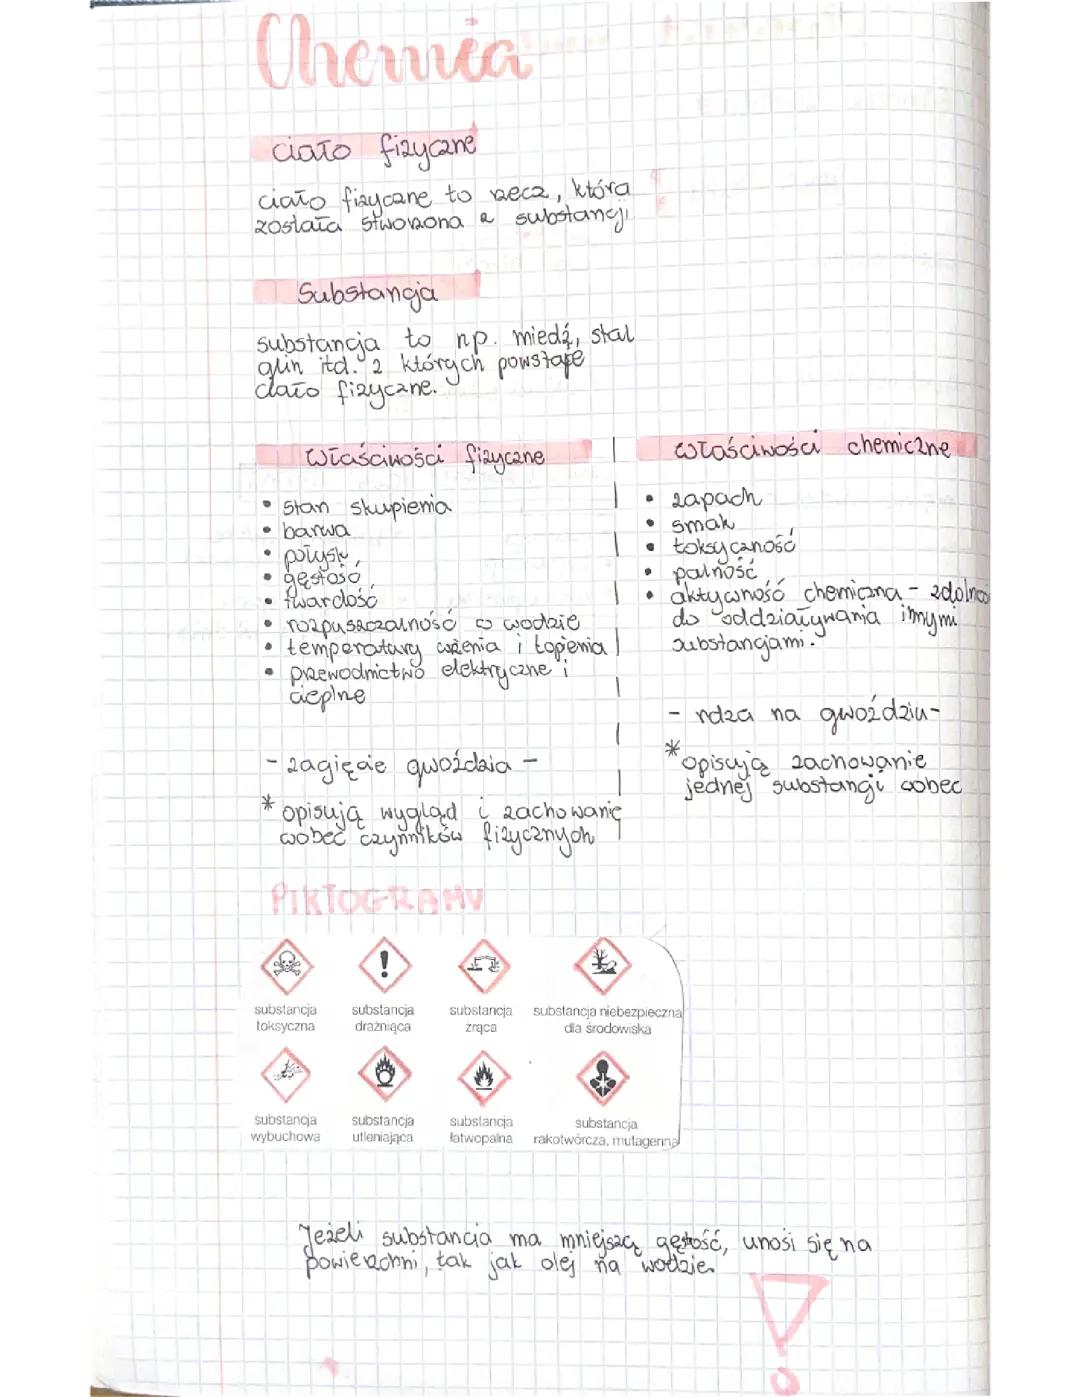 Chemia
ciało fizyczne
ciało fizyczne to rzecz, która
została stworzona z substancji
Substancja
substancja to np. miedź, stal
glin itd. z których powstaje
ciało fizyczne.
właściwości fizyczne
• stan skupienia
• barwa
• połysk
• gęstość
• twardość
• rozpuszczalność w wodzie
• temperatury wrzenia i topienia
• przewodnictwo elektryczne i
cieplne
- zagięcie gwoździa -
* opisują wygląd i zachowanie
wobec czynników fizycznych
właściwości chemiczne
• zapach
• smak
• toksyczność
• palność
• aktywność chemiczna - zdolnoś
do oddziaływania innymi
substancjami.
- rdza na gwoździu-
* opisują zachowanie
jednej substancji wobec
PIKTOGRAMY
substancja toksyczna
substancja drażniąca
substancja żrąca
substancja niebezpieczna dla środowiska
substancja wybuchowa
substancja utleniająca
substancja łatwopalna
substancja rakotwórcza, mutagenna
Jeżeli substancja ma mniejszą gęstość, unosi się na
powierzchni, tak jak olej na wodzie.
!